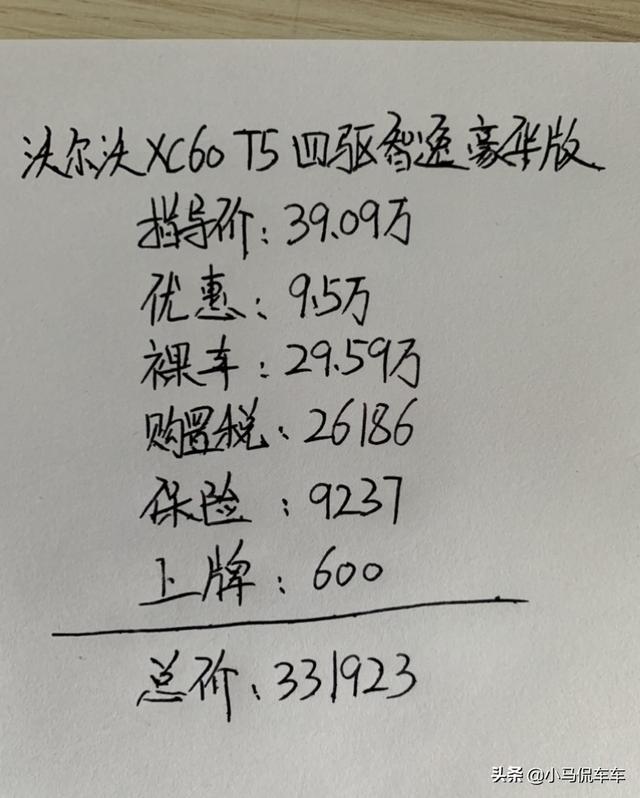 沃尔沃XC60 T5 四驱智逸豪华版
指导价：39.09万
优惠：9.5万
裸车：29.59万
购置税：26186
保险：9237
上牌：600
总价：331923
头条 @小马侃车车